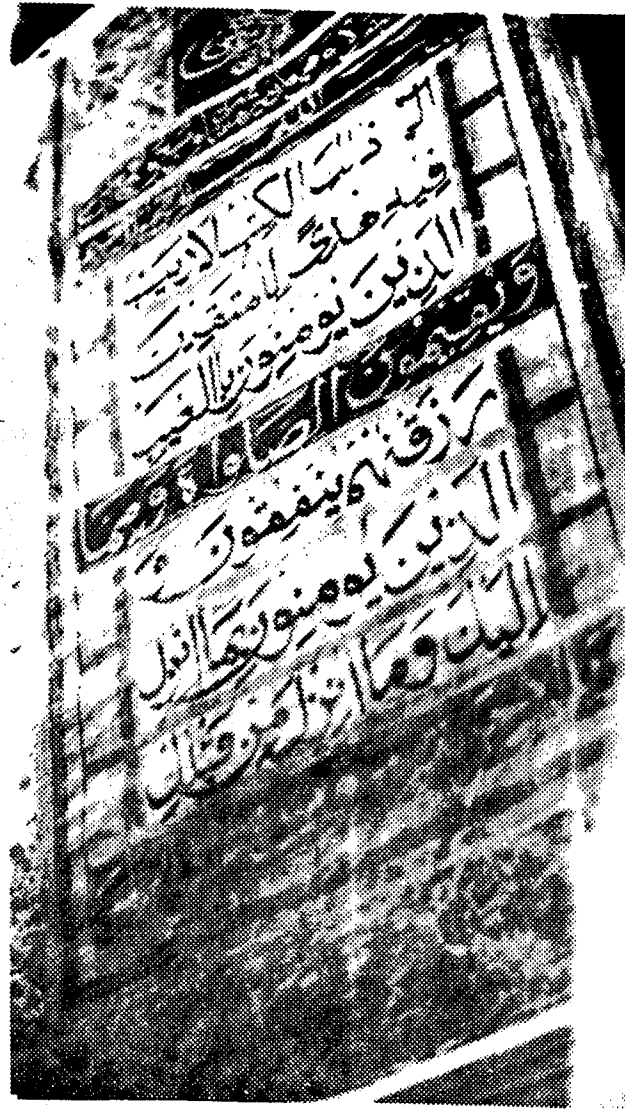 الم ذلك الكتب لا ريب
فيه هدى للمتقين
الذين يومنون بالغيب
ويقيمون الصلوة ومما
رزقنهم ينفقون و
الذين يومنون بما انزل
اليك وما انزل من قبلك